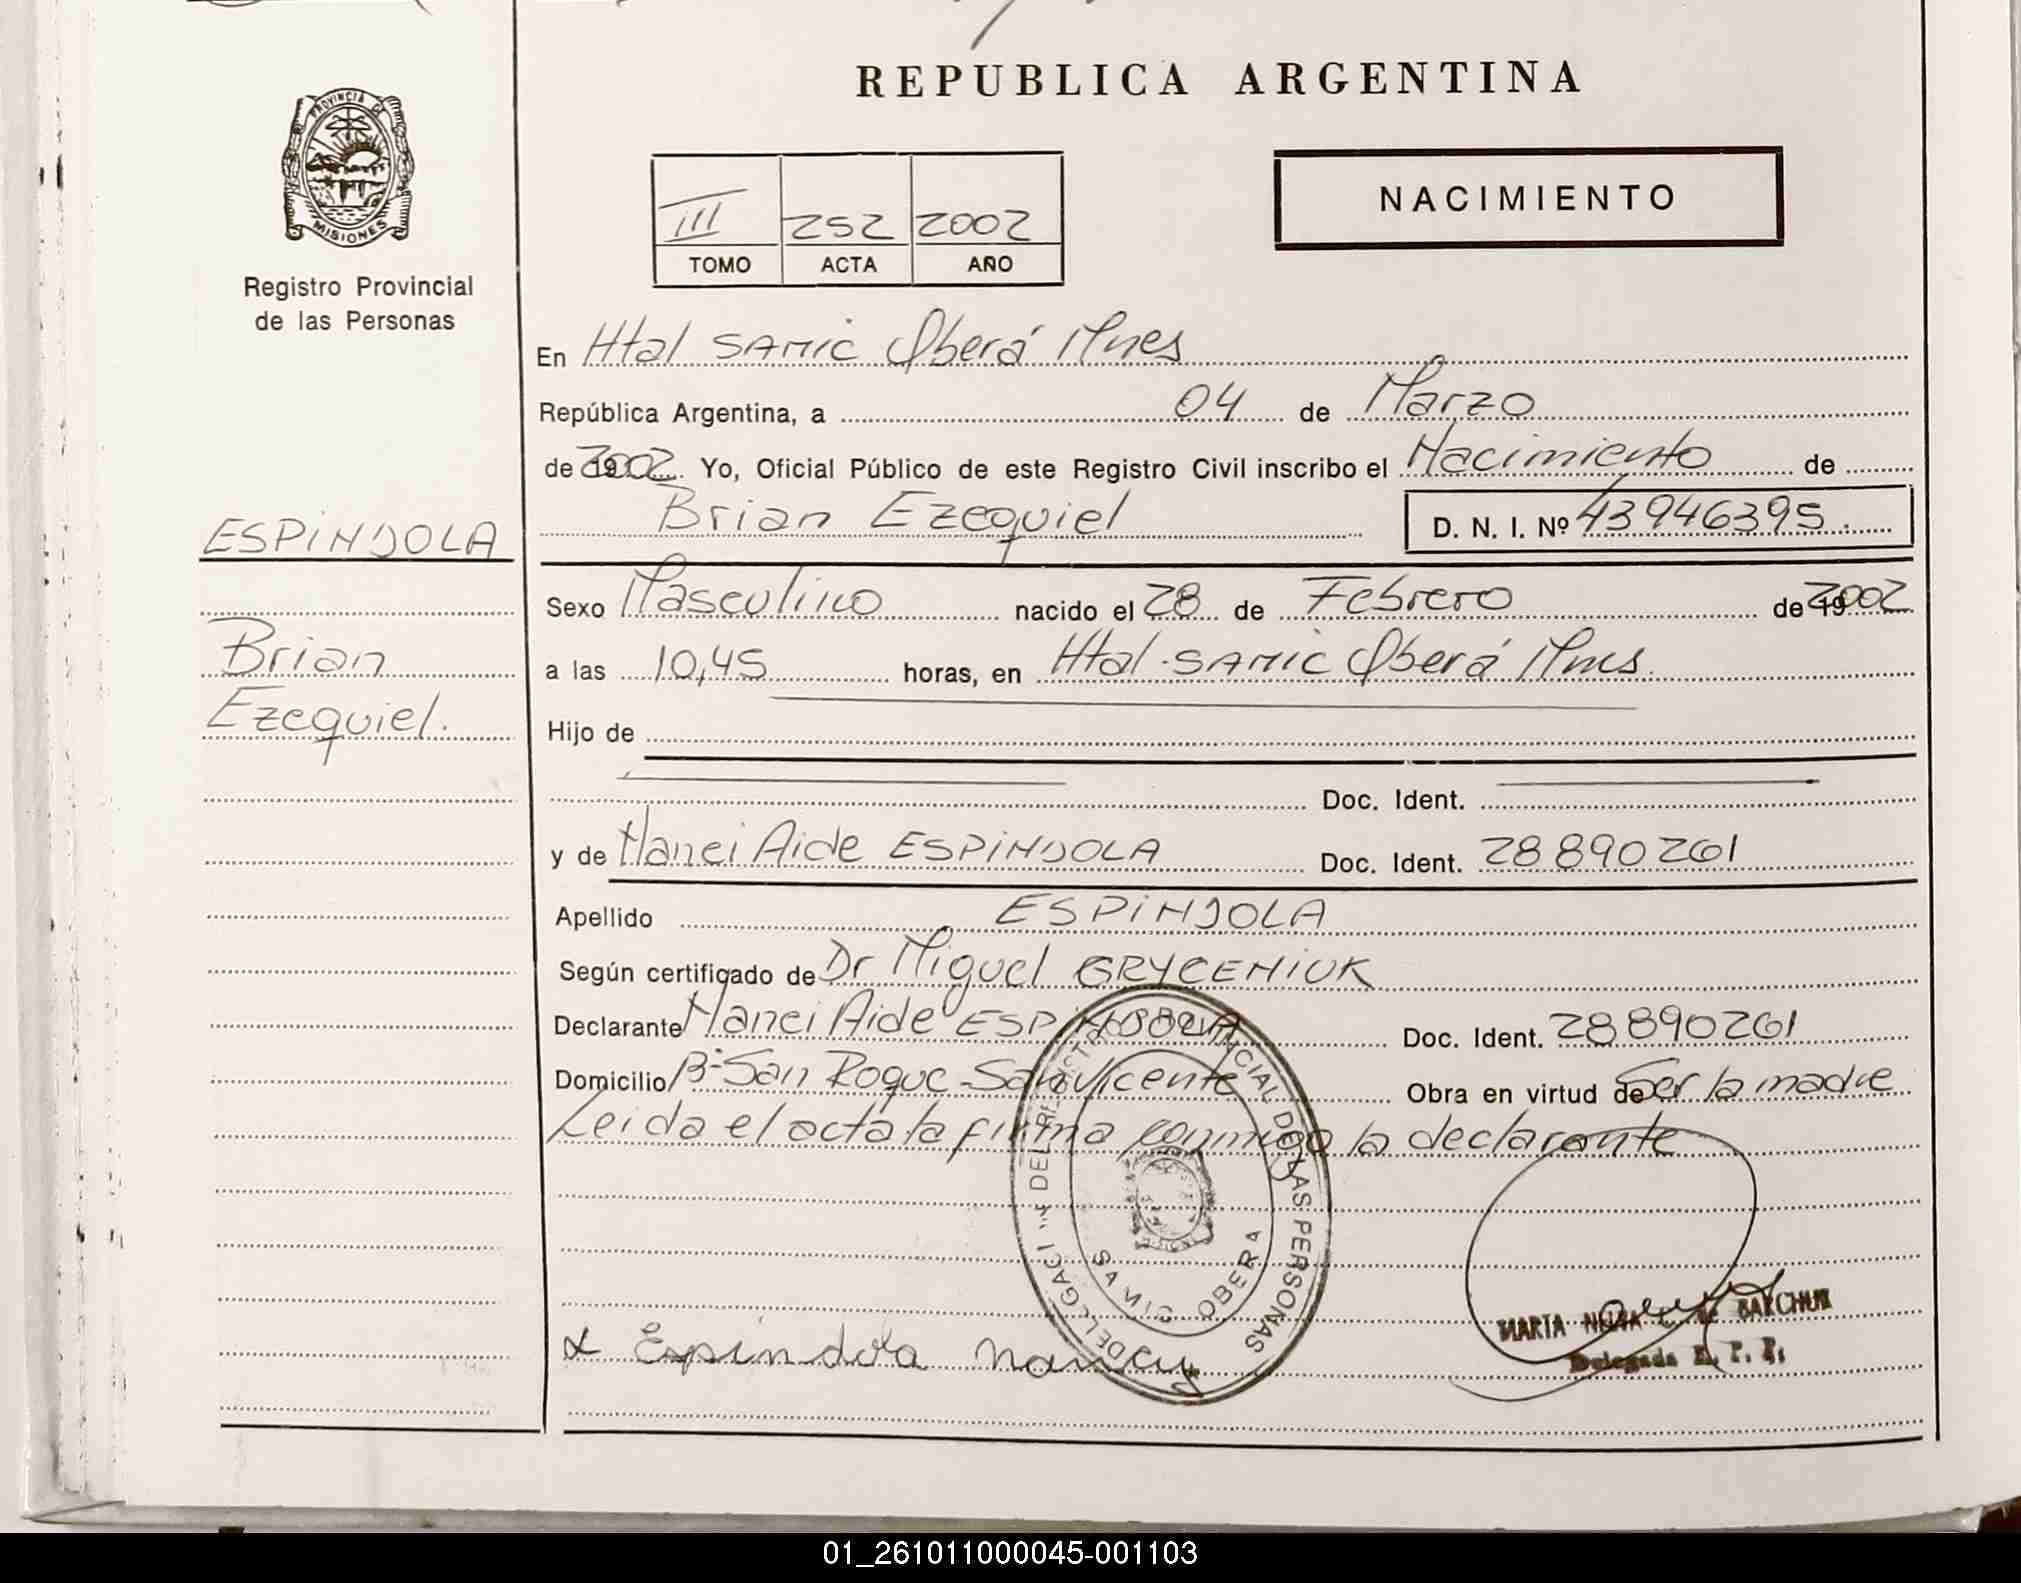 REPUBLICA ARGENTINA
PROVINCIA DE
MISIONES
Registro Provincial
de las Personas
NACIMIENTO
III 252 2002
TOMO ACTA AÑO
En Htal SAMIC Oberá Mnes
República Argentina, a 04 de Marzo
de 2002. Yo, Oficial Público de este Registro Civil inscribo el Nacimiento de
Brian Ezequiel D. N. I. Nº 43946395.
ESPINDOLA
Brian
Ezequiel.
Sexo Masculino nacido el 28 de Febrero de 2002
a las 10,45 horas, en Htal. SAMIC Oberá Mnes.
Hijo de
Doc. Ident.
y de Nanci Aide ESPINDOLA Doc. Ident. 28890261
Apellido ESPINDOLA
Según certificado de Dr Miguel GRYCENIUK
Declarante Nanci Aide ESPINDOLA Doc. Ident. 28890261
Domicilio Bº San Roque - San Vicente Obra en virtud de Ser la madre
Leida el acta la firma conmigo la declarante
DE LAS PERSONAS
SAMIC OBERA
x Espindola Nancy
MARTA de BARCHUK
Delegada R. P. P.
01_261011000045-001103